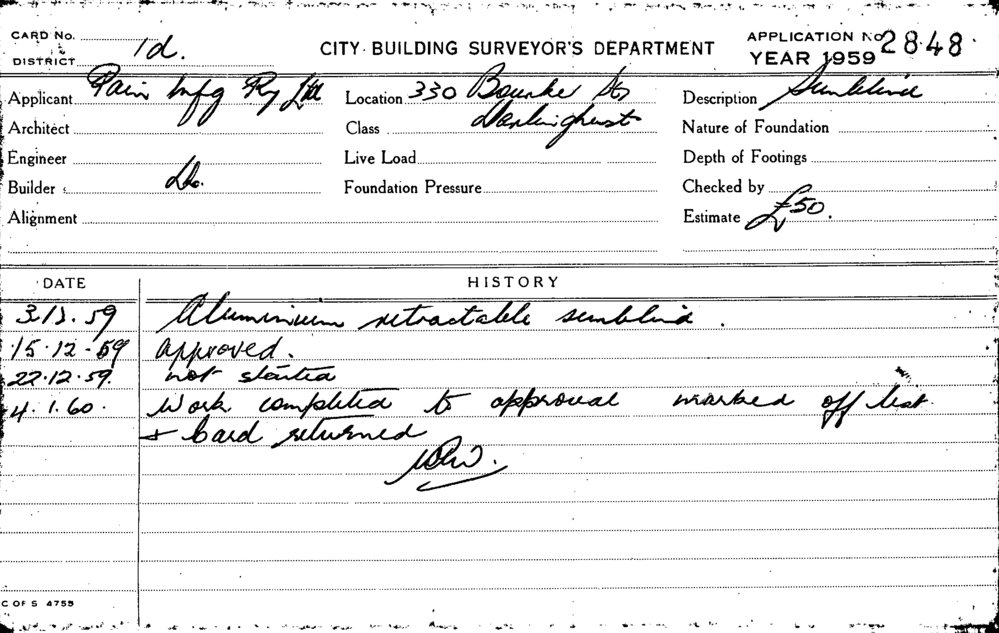 CARD No.
DISTRICT 1d.
CITY BUILDING SURVEYOR'S DEPARTMENT
APPLICATION No 2848.
YEAR 1959
Applicant Pain Mfg Py Ltd Location 330 Bourke St, Description Sunblind
Architect Class Darlinghurst Nature of Foundation
Engineer Live Load Depth of Footings
Builder Do. Foundation Pressure Checked by
Alignment Estimate £50.
DATE HISTORY
59 Aluminium retractable sunblind.
15.12.59 approved.
22.12.59. not started
4.1.60. Work completed to approval marked off list
+ card returned
C OF S 4755